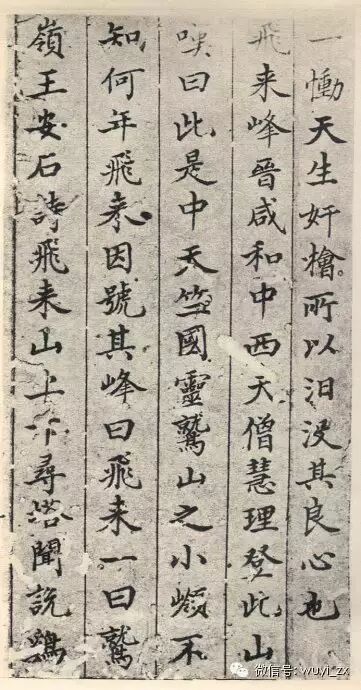 一慟天生奸檜所以汨没其良心也
飛来峰晉咸和中西天僧慧理登此山
嘆曰此是中天竺國靈鷲山之小嶺不
知何年飛来因號其峰曰飛来一曰鷲
嶺王安石詩飛来山上千尋塔聞説鷄
微信号: wuyi_zx